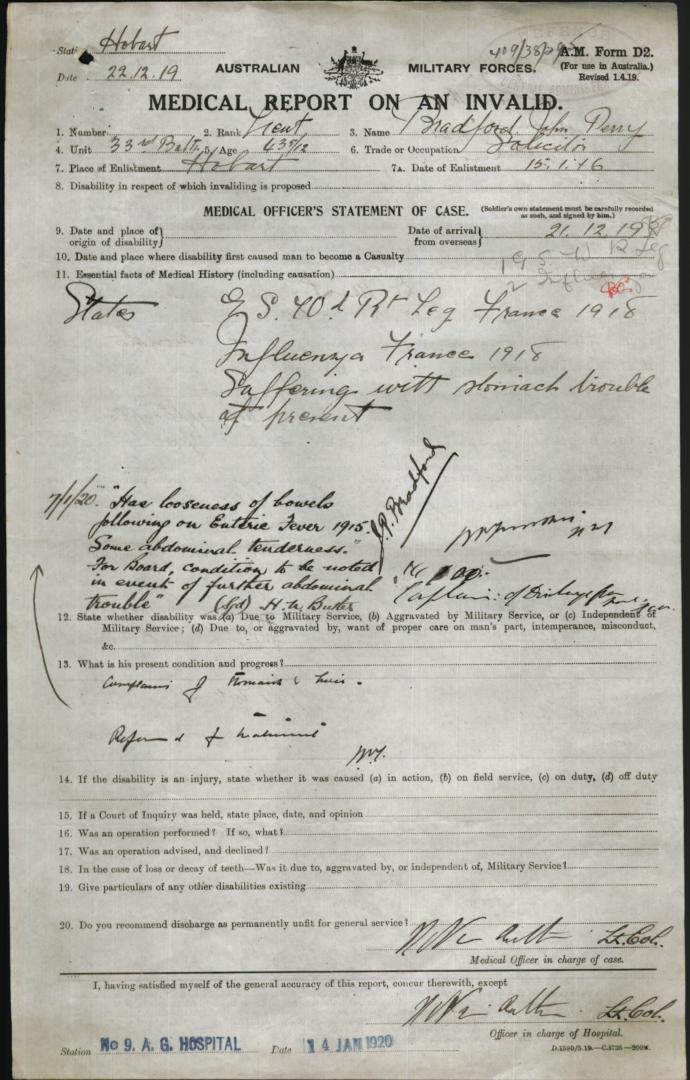 Station Hobart
409/38/295
A.M. Form D2.
(For use in Australia.)
Revised 1.4.19.
Date 22.12.19
AUSTRALIAN MILITARY FORCES.
MEDICAL REPORT ON AN INVALID.
1. Number 2. Rank Lieut 3. Name Bradford John Perry
4. Unit 33rd Battn 5. Age 43 5/12 6. Trade or Occupation Solicitor
7. Place of Enlistment Hobart 7A. Date of Enlistment 15.1.16
8. Disability in respect of which invaliding is proposed
MEDICAL OFFICER'S STATEMENT OF CASE. (Soldier's own statement must be carefully recorded as such, and signed by him.)
9. Date and place of origin of disability} Date of arrival from overseas} 21.12.19
10. Date and place where disability first caused man to become a Casualty
1 G S W R Leg
2 Influenza
11. Essential facts of Medical History (including causation)
States G. S. Wd Rt Leg France 1918
Influenza France 1918
Suffering with stomach trouble
at present
J.P. Bradford
7/1/20. "Has looseness of bowels
following on Enteric Fever 1915.
Some abdominal tenderness."
For Board, condition to be noted
in event of further abdominal
trouble" (Sgd) H. N. Butler
12. State whether disability was (a) Due to Military Service, (b) Aggravated by Military Service, or (c) Independent of
Military Service; (d) Due to, or aggravated by, want of proper care on man's part, intemperance, misconduct,
&c.
13. What is his present condition and progress?
Complains of
14. If the disability is an injury, state whether it was caused (a) in action, (b) on field service, (c) on duty, (d) off duty
15. If a Court of Inquiry was held, state place, date, and opinion
16. Was an operation performed? If so, what?
17. Was an operation advised, and declined?
18. In the case of loss or decay of teeth—Was it due to, aggravated by, or independent of, Military Service?
19. Give particulars of any other disabilities existing
20. Do you recommend discharge as permanently unfit for general service?
Lt. Col.
Medical Officer in charge of case.
I, having satisfied myself of the general accuracy of this report, concur therewith, except
Lt. Col.
Officer in charge of Hospital.
Station No 9. A. G. HOSPITAL Date 14 JAN 1920
D.1590/5.19.—C.5736—200m.